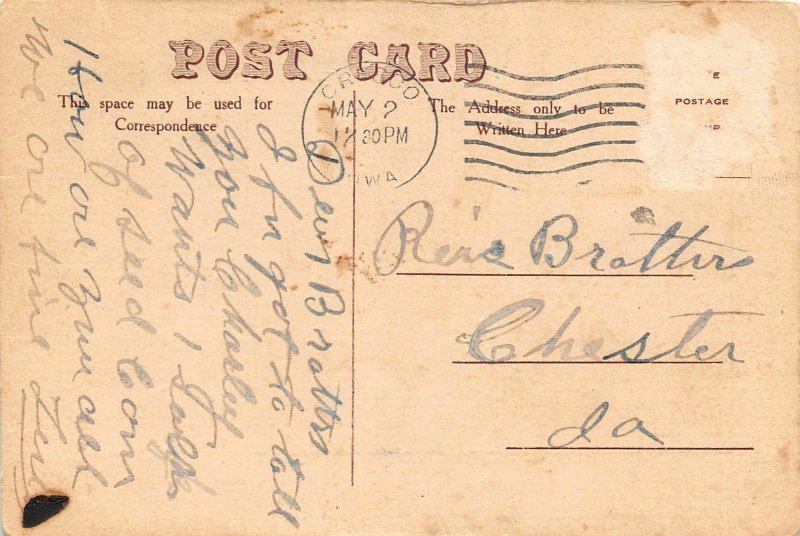 POST CARD
This space may be used for
Correspondence
The Address only to be
Written Here
POSTAGE
MAY 2
12 30 PM
Dear Brothers
I for got to tell
you Charley
wants 1
of seed Corn
How are you all
We are fine
Reis Brothers
Chester
Ia